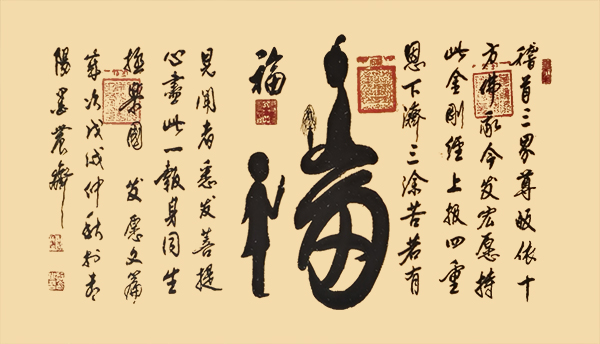 稽首三界尊皈依十
方佛我今发宏愿持
此金剛經上报四重
恩下濟三涂苦若有
福
福
見聞者悉发菩提
心盡此一報身同生
極樂國 发愿文篇
歲次戊戌仲秋於
陽墨農齋